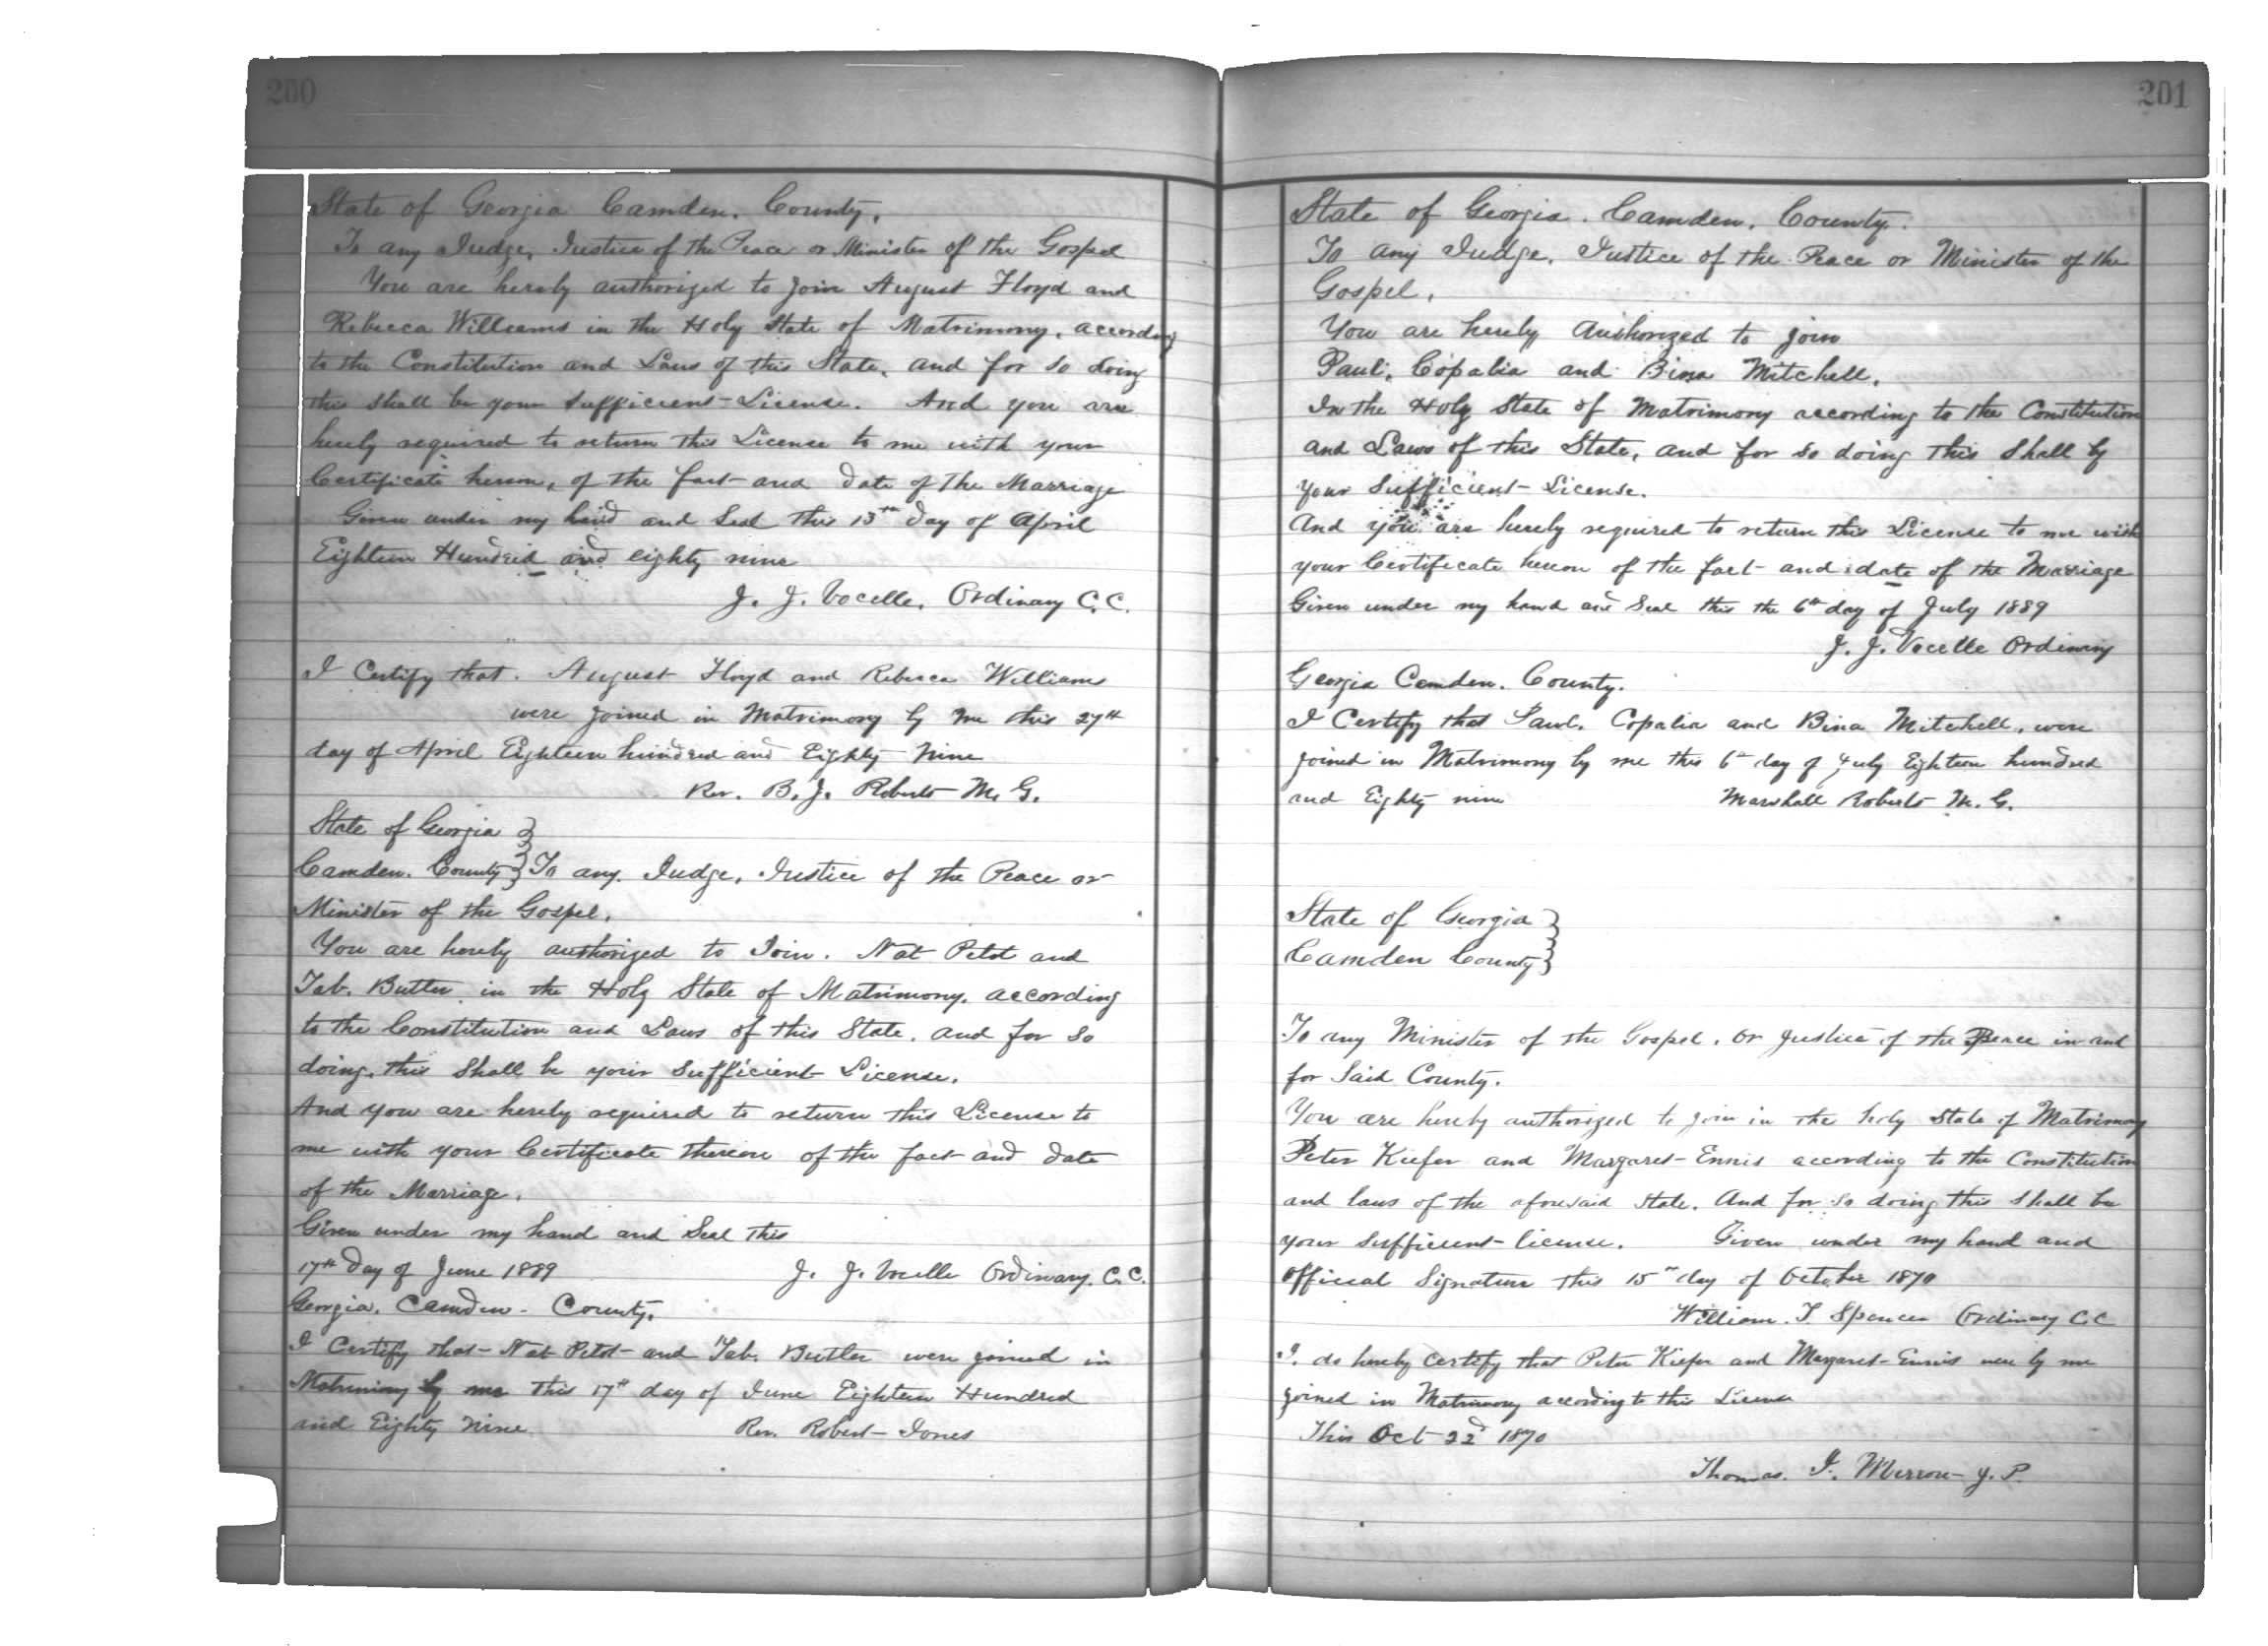 200
State of Georgia Camden. County.
To any Judge, Justice of the Peace or Minister of the Gospel
You are hereby authorized to join August Floyd and
Rebecca Williams in the Holy State of Matrimony, according
to the Constitution and Laws of this State, and for so doing
this shall be your sufficient License. And you are
hereby required to return this License to me with your
Certificate hereon, of the fact and date of the Marriage
Given under my hand and Seal this 13th day of April
Eighteen Hundred and eighty nine
J. J. Vocelle, Ordinary C. C.
I Certify that. August Floyd and Rebecca Williams
were joined in Matrimony by me this 27th
day of April Eighteen hundred and Eighty Nine
Rev. B. J. Roberts M. G.
State of Georgia }
Camden. County } To any. Judge, Justice of the Peace or
Minister of the Gospel.
You are hereby authorized to Join. Nat Petot and
Tab. Butler in the Holy State of Matrimony. according
to the Constitution and Laws of this State. and for so
doing. this Shall be your Sufficient License.
And you are hereby required to return this License to
me with your Certificate thereon of the fact and date
of the Marriage.
Given under my hand and Seal this
17th day of June 1889 J. J. Vocelle Ordinary. C. C.
Georgia. Camden. County.
I Certify that Nat Petot and Tab. Butler were joined in
Matrimony by me this 17th day of June Eighteen Hundred
and Eighty Nine Rev. Robert Jones
201
State of Georgia. Camden. County.
To any Judge, Justice of the Peace or Minister of the
Gospel.
You are hereby Authorized to join
Paul. Copalia and Bina Mitchell.
In the Holy State of Matrimony according to the Constitution
and Laws of this State, and for so doing this Shall by
your Sufficient License.
And you are hereby required to return this License to me with
your Certificate hereon of the fact and date of the Marriage
Given under my hand and Seal this the 6th day of July 1889
J. J. Vocelle Ordinary
Georgia Camden. County.
I Certify that Paul. Copalia and Bina Mitchell, were
joined in Matrimony by me this 6th day of July Eighteen hundred
and Eighty nine Marshall Roberts M. G.
State of Georgia }
Camden County }
To any Minister of the Gospel. or Justice of the Peace in and
for Said County.
You are hereby authorized to join in the holy State of Matrimony
Peter Kiefer and Margaret Ennis according to the Constitution
and laws of the aforesaid State. And for so doing this shall be
your sufficient license. Given under my hand and
official Signature this 15th day of October 1870
William. T. Spencer Ordinary C. C
I. do hereby certify that Peter Kiefer and Margaret Ennis were by me
joined in Matrimony according to this License
This Oct 22d 1870
Thomas. J. Merrow J. P.